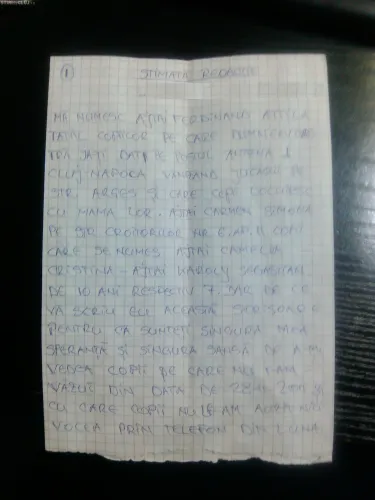 1
STIMATĂ REDACȚIE
MĂ NUMESC AJTAI FERDINAND ATTILA
TATĂL COPIILOR PE CARE DUMNEAVOASTRĂ
DAȚI PE POSTUL ANTENA 1
CLUJ-NAPOCA VÂNZÂND JUCĂRII PE
STR ARGEȘ ȘI CARE COPII LOCUIESC
CU MAMA LOR. AJTAI CARMEN SIMONA
PE STR CROITORILOR NR COPII
CARE SE NUMESC AJTAI CAMELIA
CRISTINA - AJTAI KAROLY SEBASTIAN
DE 10 ANI RESPECTIV 7. DAR DE CE
VĂ SCRIU EU ACEASTĂ SCRISOARE
PENTRU CĂ SUNTEȚI SINGURA MEA
SPERANȚĂ ȘI SINGURA ȘANSĂ DE A-MI
VEDEA COPII PE CARE NU I-AM
VĂZUT DIN DATA DE
CU CARE COPII NU LE-AM AUZIT NICI
VOCEA PRIN TELEFON DIN LUNA